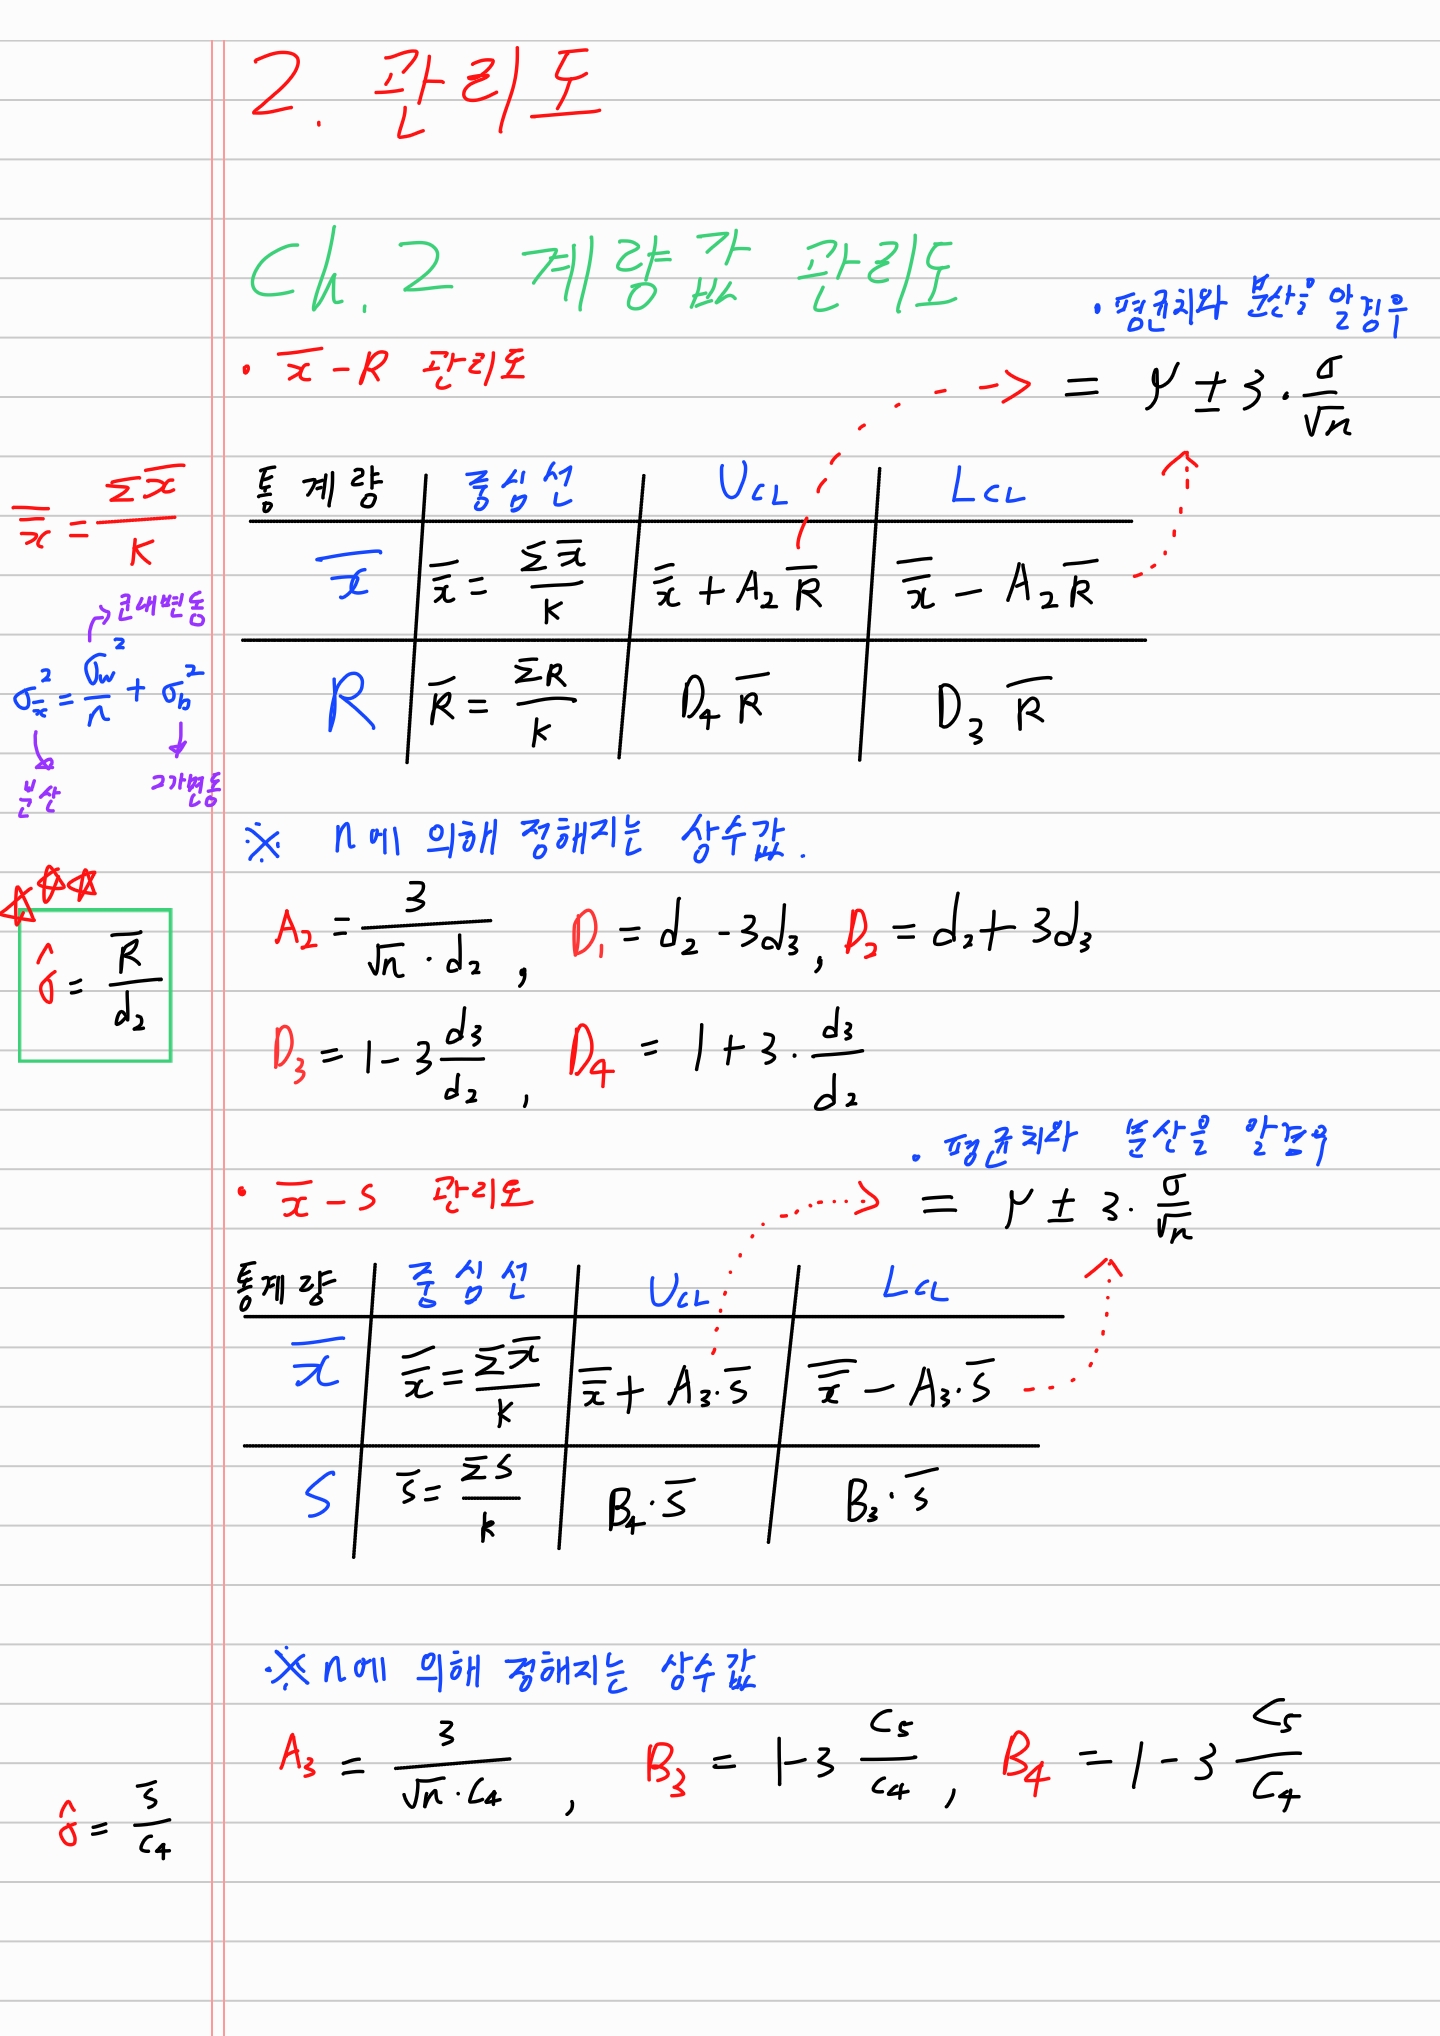 2. 관리도
Ch.2 계량값 관리도
• 평균치와 분산을 알 경우
• x̄ - R 관리도
= μ ± 3 · σ/√n
통계량 중심선 UCL LCL
x̄ x̿ = Σx̄/k x̿ + A₂R̄ x̿ - A₂R̄
R R̄ = ΣR/k D₄R̄ D₃R̄
x̿ = Σx̄/K
→ 군내변동
σx̄² = σw²/n + σb²
분산 군간변동
※ n에 의해 정해지는 상수값.
A₂ = 3/(√n · d₂) , D₁ = d₂ - 3d₃, D₂ = d₂ + 3d₃
☆☆☆
σ̂ = R̄/d₂
D₃ = 1 - 3 d₃/d₂ , D₄ = 1 + 3 · d₃/d₂
• 평균치와 분산을 알 경우
• x̄ - s 관리도
= μ ± 3 · σ/√n
통계량 중심선 UCL LCL
x̄ x̿ = Σx̄/k x̿ + A₃·s̄ x̿ - A₃·s̄
S s̄ = ΣS/k B₄·s̄ B₃·s̄
※ n에 의해 정해지는 상수값
A₃ = 3/(√n · C₄) , B₃ = 1-3 C₅/C₄ , B₄ = 1-3 C₅/C₄
σ̂ = s̄/C₄